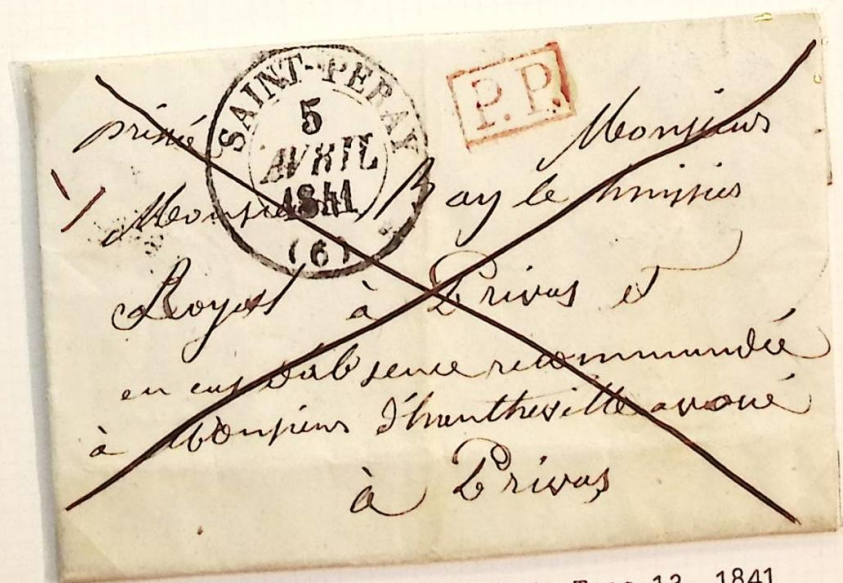 SAINT-PERAY
5
AVRIL
1841
(6)
P.P.
Monsieur
Monsieur Bay le
Royal à Privas et
en cas d'absence recommandée
à Monsieur avoué
à Privas
13 1841